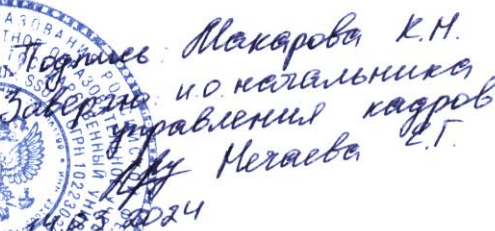 Подпись Макарова К.Н.
Заверяю и.о. начальника
управления кадров
Нечаева Е.Г.
14.03.2024